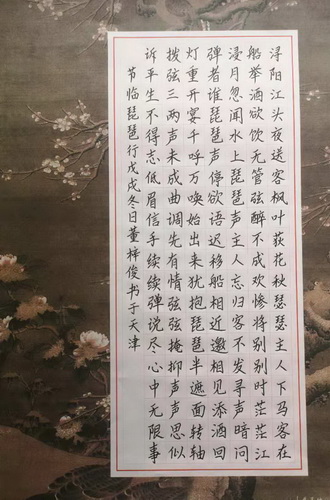 浔阳江头夜送客枫叶荻花秋瑟瑟主人下马客在
船举酒欲饮无管弦醉不成欢惨将别别时茫茫江
浸月忽闻水上琵琶声主人忘归客不发寻声暗问
弹者谁琵琶声停欲语迟移船相近邀相见添酒回
灯重开宴千呼万唤始出来犹抱琵琶半遮面转轴
拨弦三两声未成曲调先有情弦弦掩抑声声思似
诉平生不得志低眉信手续续弹说尽心中无限事
节临琵琶行戊戌冬日董梓俊书于天津